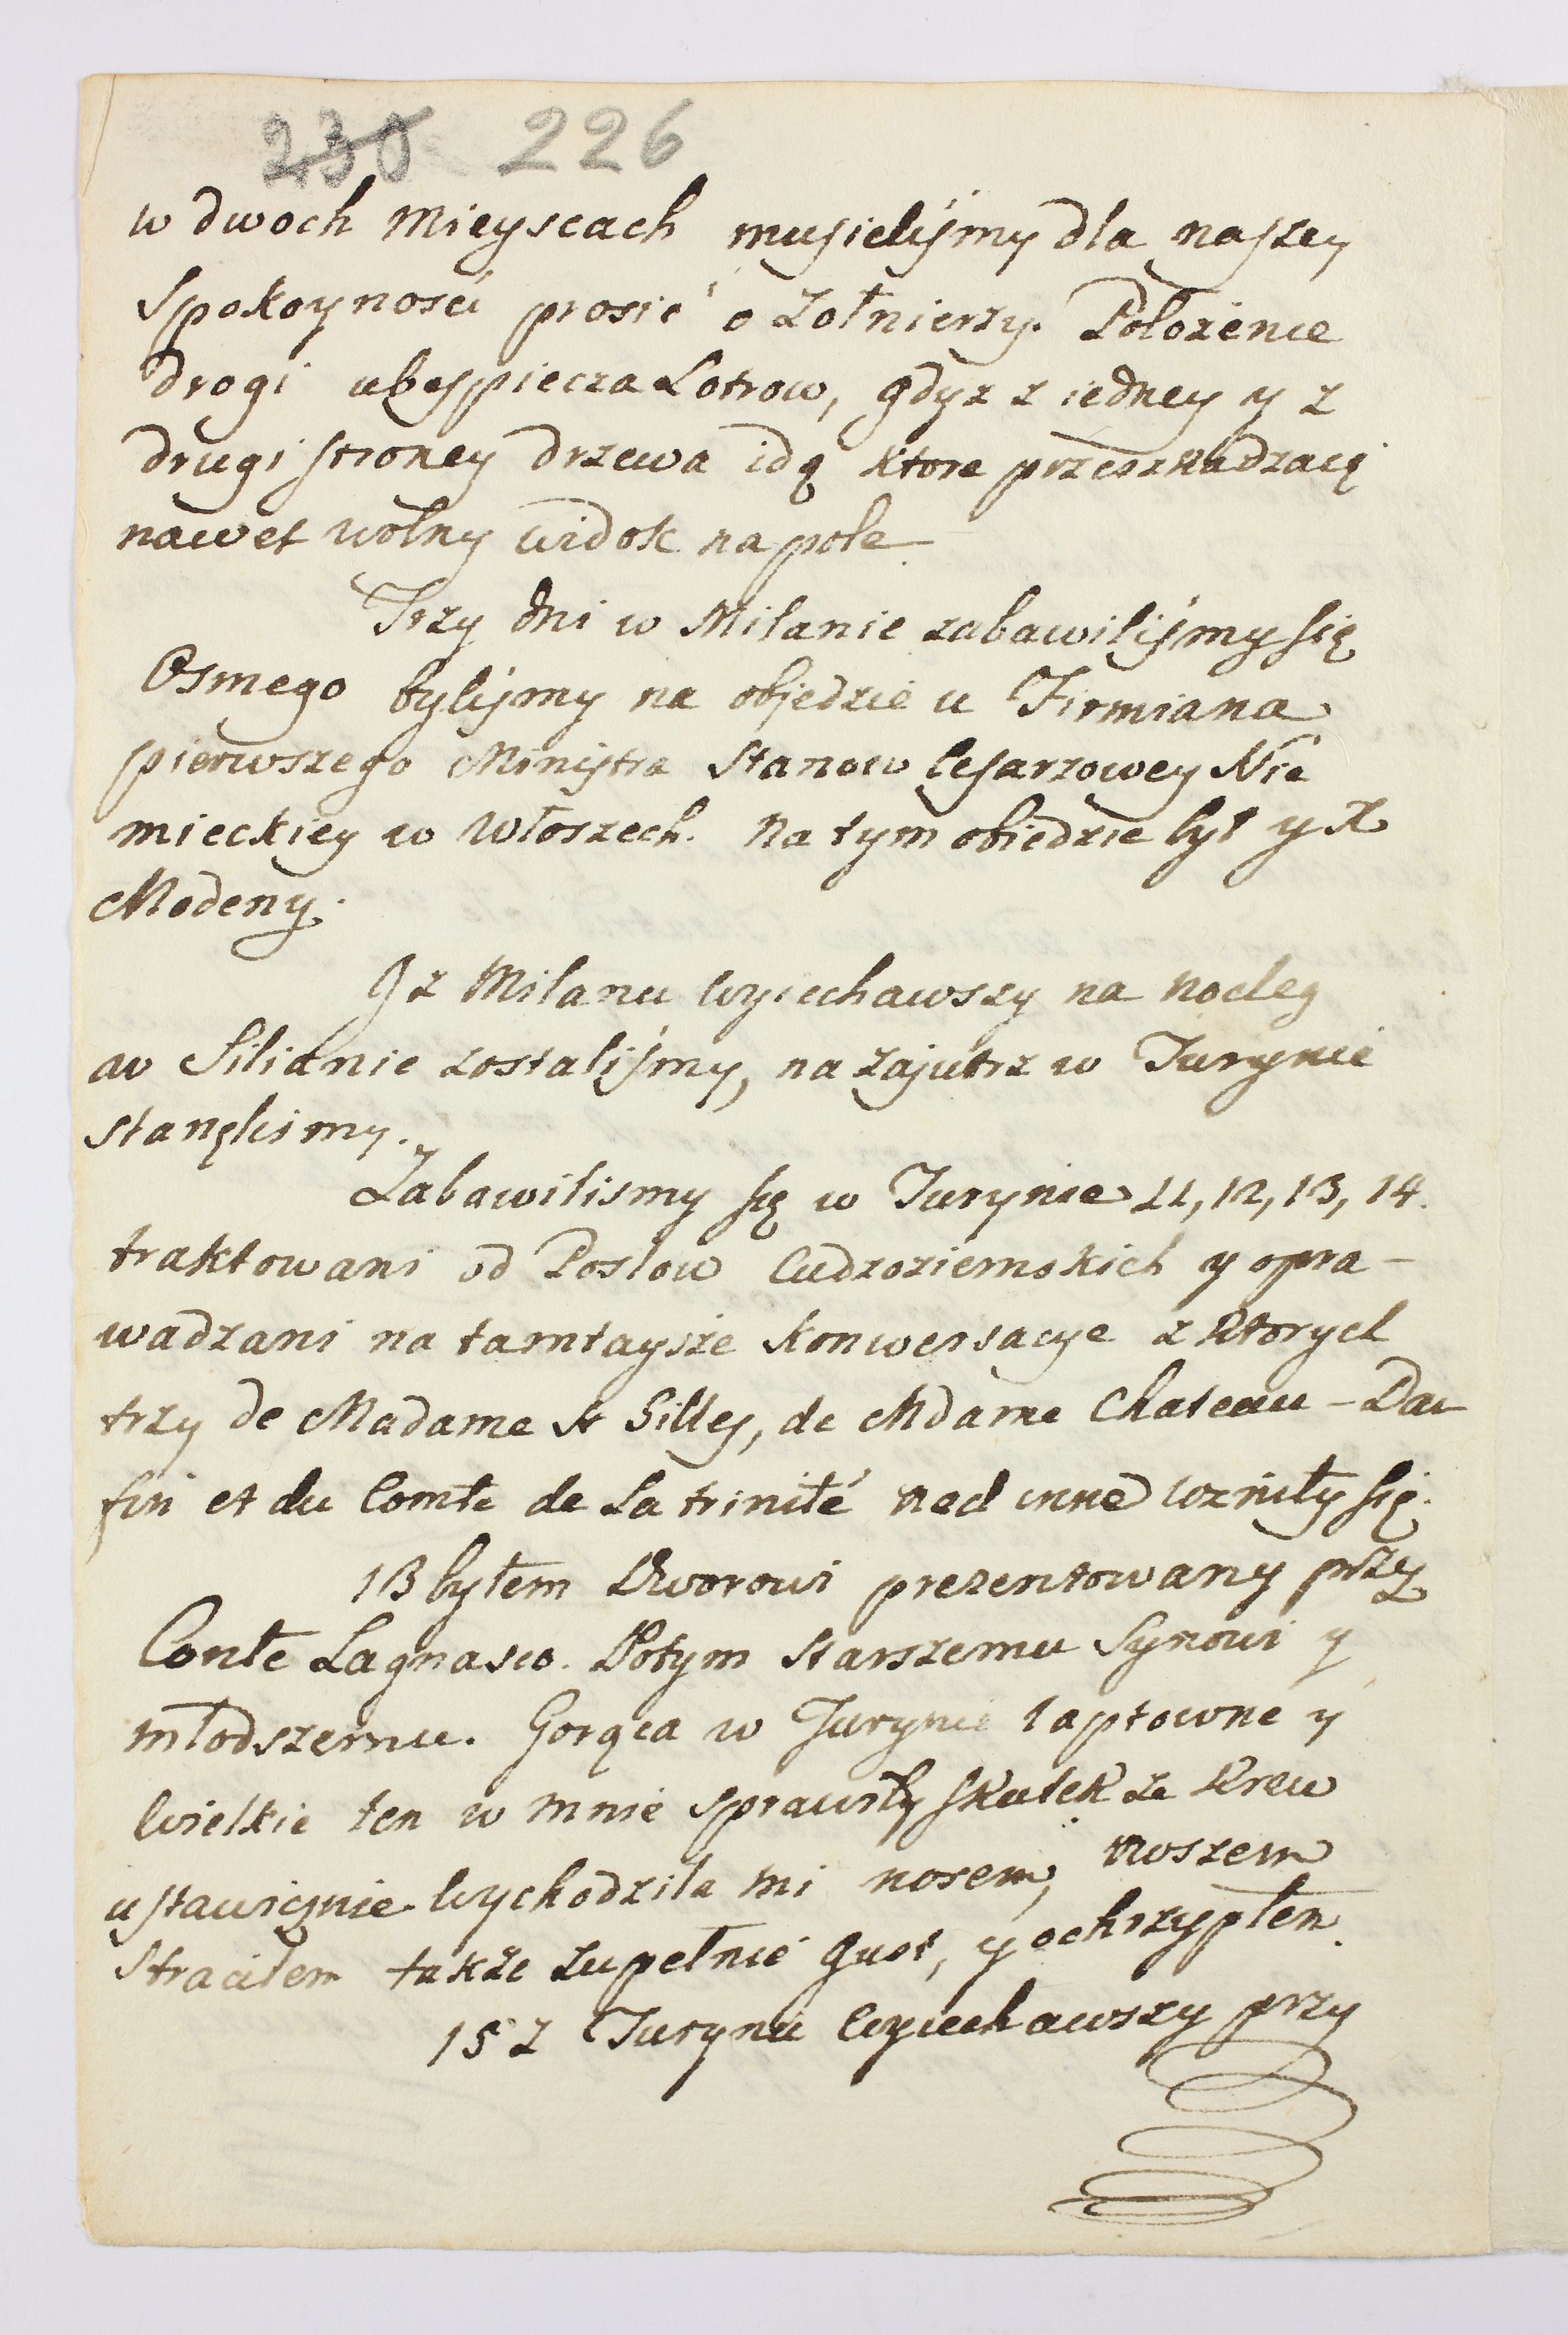 230 226
w dwoch mieyscach musieliśmy dla naszey
Spokoynosci prosić o Zołnierzy. Położenie
drogi ubespiecza Lotrow, gdyz z iedney y z
drugi stroney drzewa idą ktore przeszkadzaią
nawet wolny widok na pole
Trzy dni w Milanie zabawiliśmy się
Osmego byliśmy na objedzie u Firmiana
pierwszego Ministra Stanow Cesarzowey Nie
mieckiey w Włoszech. Na tym obiedzie był y X
Modeny.
9 z Milanu wyiechawszy na nocleg
w Silianie zostaliśmy, na zajutrz w Turynie
stanęlismy.
Zabawilismy się w Turynie 11, 12, 13, 14.
traktowani od Posłow Cudzoziemskich y opra-
wadzani na tamtaysze konwersacye z ktorych
trzy de Madame St Gilles, de Mdame Chateau-Dau
fin et du Comte de La trinité nad inne wzniły się.
13 byłem Dworowi prezentowany przy
Conte Lagnasco. Potym starszemu Synowi y
młodszemu. Gorąca w Turynie raptowne y
wielkie ten w mnie sprawiły skutek ze krew
ustawicznie wychodziła mi nosem, noszem
Straciłem takze zupełnie gust, y ochrzypłem
15 z Turynu wyiechawszy przy